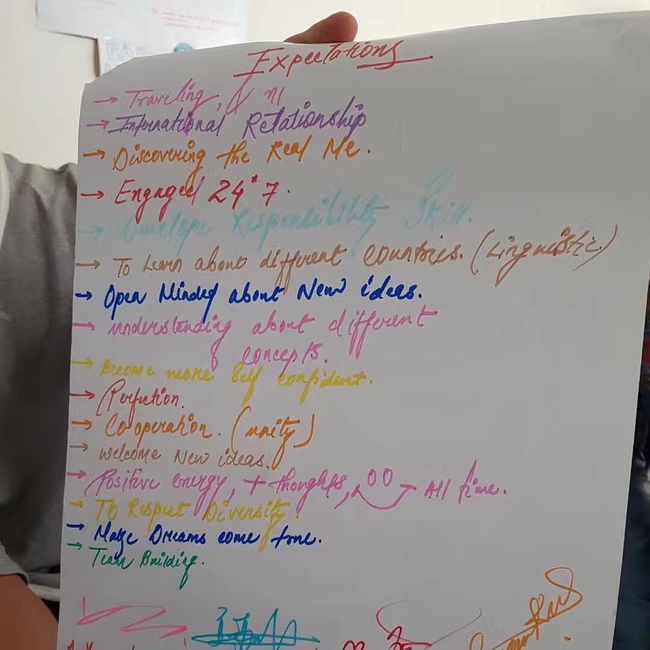 Expectations
→ Traveling,
→ International Relationship
→ Discovering the Real Me.
→ Engaged 24*7.
→ Develope Responsibility Skill.
→ To Learn about different countries. (Linguistic)
→ Open Minded about New ideas.
→ understanding about different
concepts.
→ Become more self confident.
→ Perfection.
→ Co operation. (unity)
→ welcome New ideas.
→ Positive energy, + thoughts, All time.
→ To Respect Diversity.
→ Make Dreams come true.
→ Team Building.